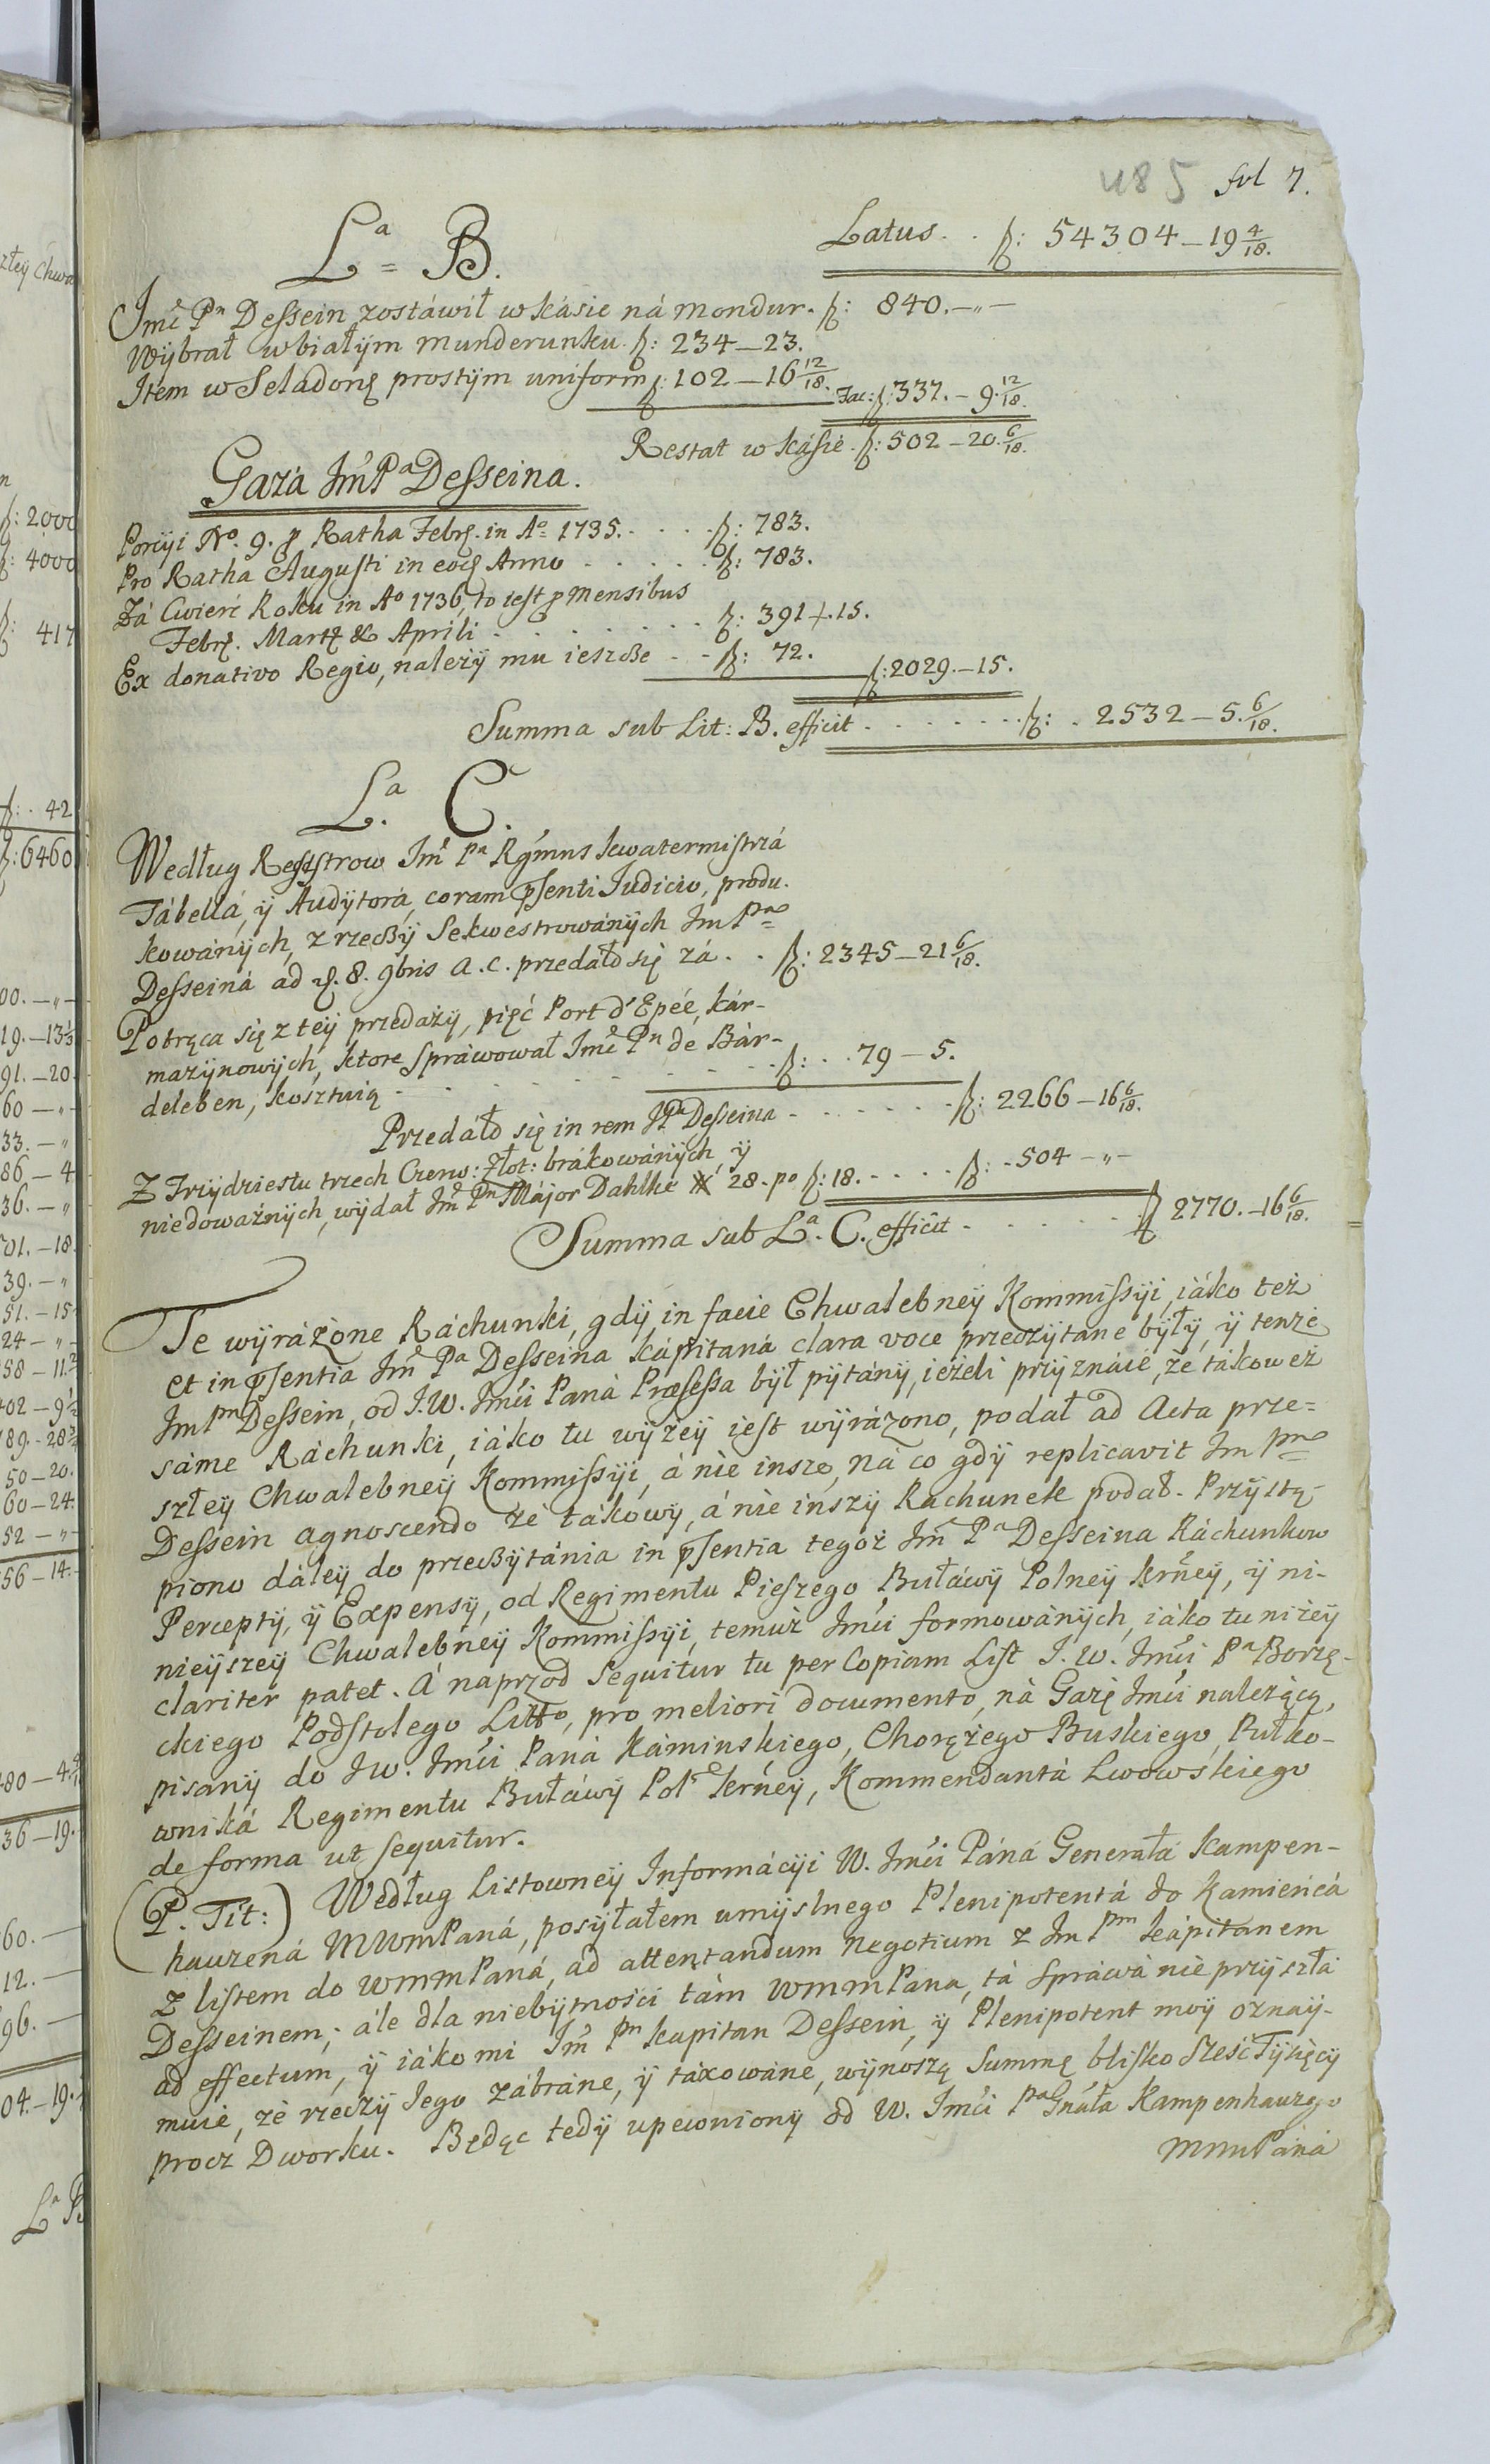 485 fol 7.
Latus . . f: 54304 – 19 4/18.
Lª = B.
Jmć Pn Dessein zostáwił w kásie ná mondur . f: 840. – „ –
Wÿbrał w białÿm munderunku . f: 234 – 23.
Item w Seladonę prostÿm uniform f: 102 – 16 12/18. Fac: f: 337. – 9. 12/18.
Restat w kásie . f: 502 – 20. 6/18.
Gaza Jm̃ Pª Desseina.
Porcÿi No. 9. p Ratha Febrȩ. in Ao 1735. . . . . f: 783.
Pro Ratha Augusti in eoḋ Anno . . . . . f: 783.
Zá Cwierć Roku in Ao 1736, to iest p mensibus
Febrȩ. Martȩ & Aprili . . . . . . . f: 391 +. 15.
Ex donativo Regio, należÿ mu ieszcze . . f: 72.
f: 2029. – 15.
Summa sub Lit: B. efficit . . . . . . . f: . 2532 – 5. 6/18.
Lª. C.
Według Regestrow Jmć Pª Rgmns kwatermistrzá
Tábellá, ÿ Audÿtorá, coram pſenti Judicio, produ.
kowánÿch, z rzeczÿ Sekwestrowánÿch Jm Pª
Desseiná ad d. 8. 9bris a. c. przedáło się zá . . f: 2345 – 21 6/18.
Potrąca się z teÿ przedażÿ, pięć Port d'Epée, kár-
mazÿnowÿch, ktore spráwował Jmć Pn de Bár-
deleben, kosztuią . . . . . . . . f: . . 79 – 5.
Przedáło się in rem JPª Desseina . . . . . . f: 2266 – 16 6/18.
Z Trzÿdziestu trzech Czerw: Złot: brákowánÿch ÿ
niedoważnÿch, wÿdał Jm̃ Pn Májor Dahlke # 28. po f: 18. . . . . f: . 504 – „ –
Summa sub Lª. C. efficit . . . . . . f 2770. – 16 6/18.
Te wÿrażone Ráchunki, gdÿ in facie Chwalebneÿ Kommissÿi, iáko też
et in pſentia Jm̃ Pª Desseina kápitaná clara voce przeczÿtane bÿłÿ, ÿ tenże
Jm Pn Dessein, od J. W. Jmći Paná Præsessa bÿł pÿtánÿ, ieżeli przÿznáie, że tákoweż
sáme Ráchunki, iáko tu wÿżeÿ iest wÿrażono, podał ad Acta prze=
szłeÿ Chwalebneÿ Kommissÿi, á nie insze, ná co gdÿ replicavit Jm Pn
Dessein agnoscendo że tákowÿ, á nie inszÿ Rachunek podał. Przÿstą-
piono dáleÿ do przeczÿtánia in pſentia tegoż Jm̃ Pª Desseina Ráchunkow
Perceptÿ, ÿ Expensÿ, od Regimentu Pieszego Buławÿ Polneÿ kor̃neÿ, ÿ ni-
nieÿszeÿ Chwalebneÿ Kommissÿi, temuż Jmći formowánÿch, iáko tu niżeÿ
clariter patet. Á naprzod Sequitur tu per Copiam List J. W. Jmći Pª Borzę-
ckiego Podstolego Litto, pro meliori documento, ná Gażę Jmći należącą,
pisanÿ do J W. Jmći Paná Káminskiego, Chorążego Buskiego, Pułko-
wniká Regimentu Buławÿ Pol: kor̃neÿ, Kommendantá Lwowskiego
de forma ut sequitur.
(P. Tit:) Według Listowneÿ Informácÿi W. Jmći Páná Generałá Kampen-
hauzená MWMPaná, posÿłałem umÿslnego Plenipotentá do Kamieńcá
z listem do WMMPaná, ad attentandum Negotium z Jm Pm kápitanem
Desseinem; ále dla niebÿtności tám WMMPana, tá Spráwá nie przÿszłá
ad effectum, ÿ iáko mi Jm̃ Pn kapitan Dessein, ÿ Plenipotent moÿ oznaÿ-
muie, że rzeczÿ Jego zábrane, ÿ táxowáne, wÿnoszą Summę blisko sześć Tÿsięcÿ
procz Dworku. Będąc tedÿ upewnionÿ od W. Jmći Pª Gnáła Kampenhauzgo
MMPáná